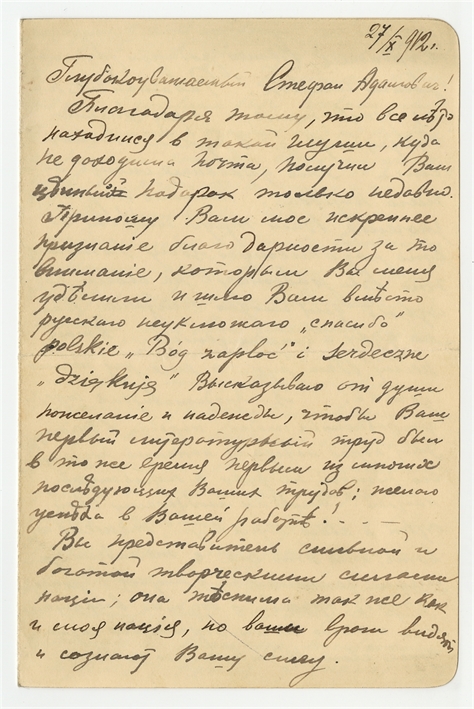 27/X 912 г.
Глубокоуважаемый Стефан Адамович!
Благодаря тому, что все лѣто
находился в такой глуши, куда
не доходила почта, получил Ваш
цѣнный подарок только недавно.
Приношу Вам мое искреннее
признание благодарности за то
внимание, которым Вы меня
удѣлили и шлю Вам вмѣсто
русскаго неуклюжаго „спасибо"
polskie „Bóg zapłać" i serdeczne
„dziękuję" Высказываю от души
пожелание и надежды, чтобы Ваш
первый литературный труд был
в то же время первым из многих
послѣдующих Ваших трудов; желаю
успѣха в Вашей работѣ! . . -
Вы представитель сильной и
богатой творческими силами
націи; она тѣснима так же как
и моя нація, но ваши враги видят
и сознают Вашу силу.